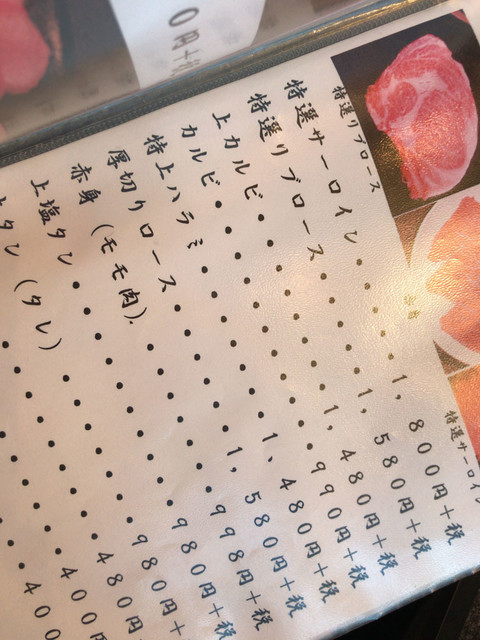 0円+税
特選リブロース
特選サーロイン
特選サーロイン・・・1,800円+税
特選リブロース・・・・・1,580円+税
上カルビ・・・・・・・1,480円+税
カルビ・・・・・・・・・・990円+税
特上ハラミ・・・・・・1,480円+税
厚切りロース・・・・・1,580円+税
赤身(モモ肉)・・・・・・998円+税
上塩タン・・・・・・・・・980円+税
上タン(タレ)・・・・・・980円
480円
400円
400